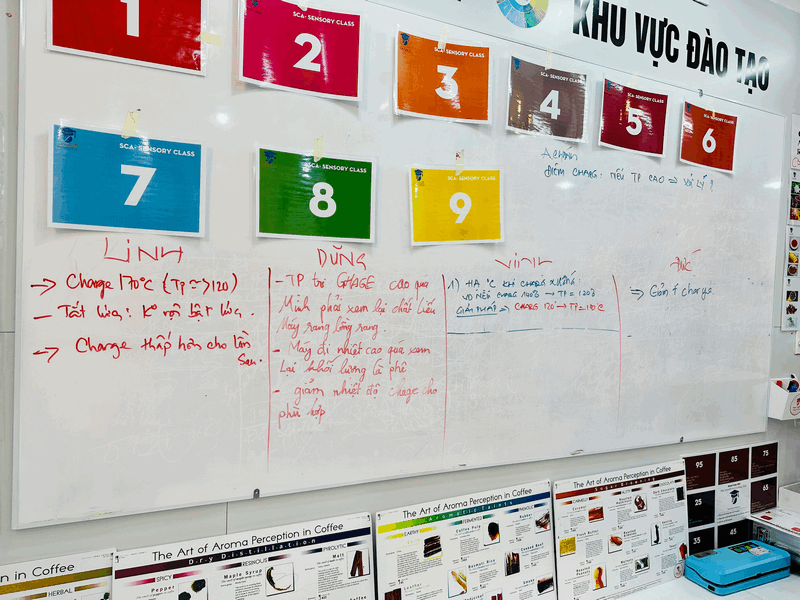 KHU VỰC ĐÀO TẠO
1
SCA- SENSORY CLASS
2
SCA- SENSORY CLASS
3
SCA- SENSORY CLASS
4
SCA- SENSORY CLASS
5
SCA- SENSORY CLASS
6
SCA- SENSORY CLASS
7
SCA- SENSORY CLASS
8
SCA- SENSORY CLASS
9
ĐIỂM CHARG: NẾU TP CAO => XỬ LÝ ?
LINH
-> Charge 170°C (TP => 120)
- Tắt lửa: K° rồi bật lửa.
-> Charge thấp hơn cho lần
sau.
DŨNG
- TP tri CHAGE cao quá
Mình phải xem lại chất liệu
Máy rang lồng rang.
- Máy đi nhiệt cao quá xem
lại khối lượng cà phê
- giảm nhiệt độ chage cho
phù hợp
VINH
1) HẠ °C KHI CHARG XUỐNG
VD NẾU CHARG 140°C -> TP = 120°C
GIẢI PHÁP => CHARG 120 -> TP = 110°C
=> Giảm t° charge
in Coffee
HERBAL
The Art of Aroma Perception in Coffee
Dry Distillation
SPICY
RESINOUS
PYROLITIC
Pepper
Maple Syrup
Malt
The Art of Aroma Perception in Coffee
Aromatic Taints
EARTHY
FERMENTED
PHENOLIC
Coffee Pulp
Rubber
The Art of Aroma Perception in Coffee
Sugar Browning
CARAMELLY
NUTTY
95
85
75
25
65
35
45